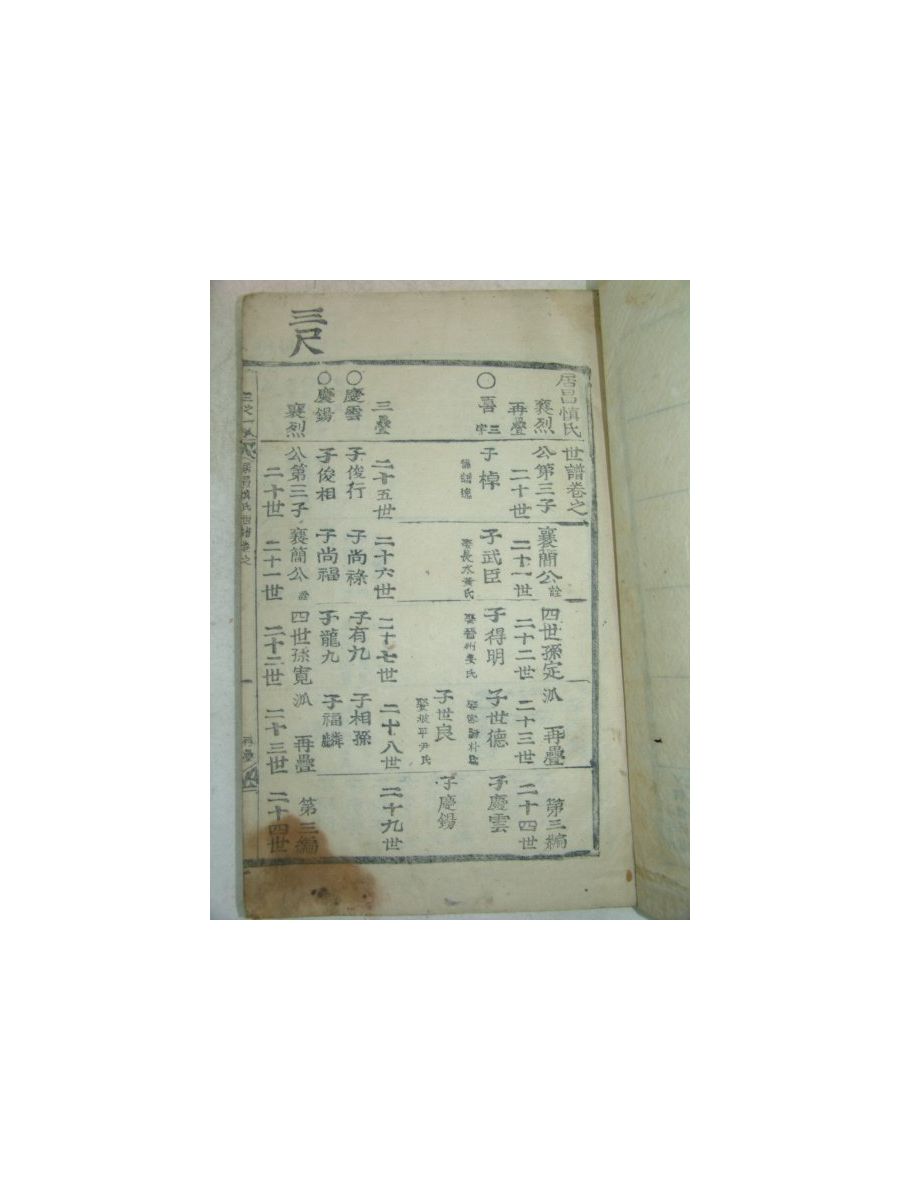 三尺
居昌愼氏世譜卷之
襄烈公第三子 襄簡公詮 四世孫定派 再疊 第三編
再疊 二十世 二十一世 二十二世 二十三世 二十四世
○喜 三字 子棹 子武臣 子得明 子世德 子慶雲
娶長水黃氏 娶晉州姜氏
子世良 子慶錫
娶坡平尹氏
三疊 二十五世 二十六世 二十七世 二十八世 二十九世
○慶雲 子俊行 子尚祿 子有九 子相孫
○慶錫 子俊相 子尚福 子龍九 子福麟
襄烈公第三子 襄簡公詮 四世孫寬派 再疊 第三編
二十世 二十一世 二十二世 二十三世 二十四世
居昌愼氏世譜卷之 再疊